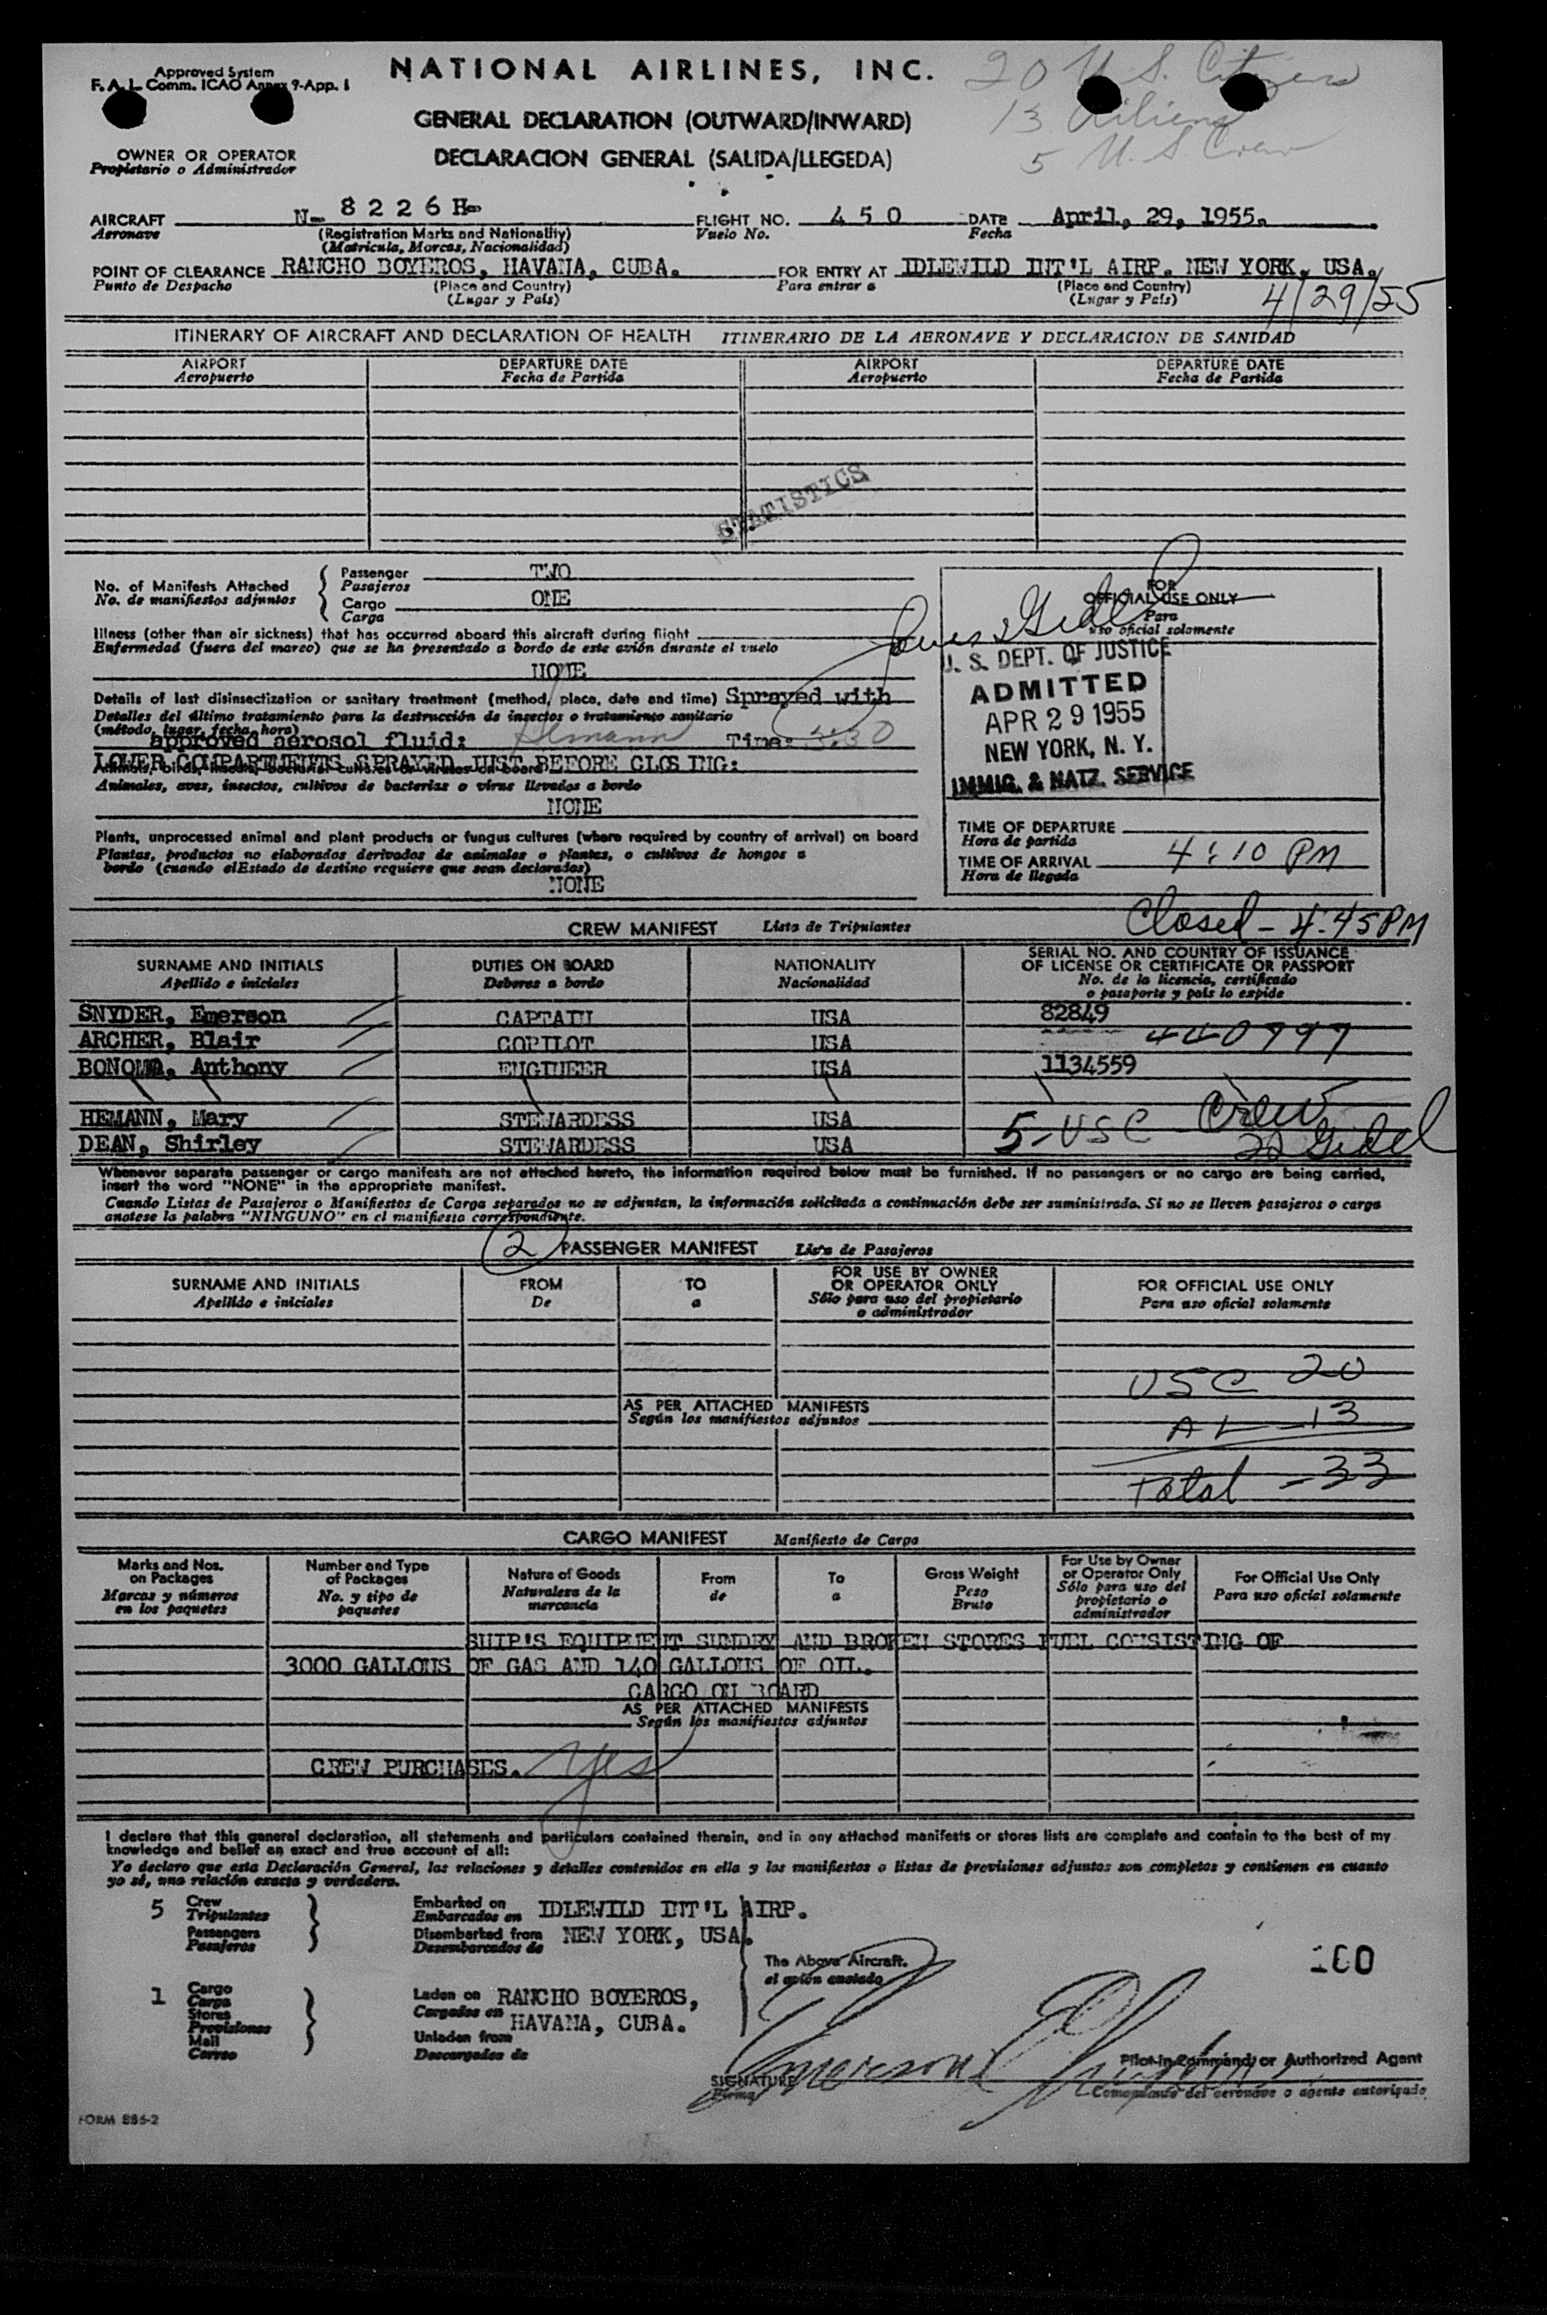 Approved System
F. A. L. Comm. ICAO Annex 9-App. 1
NATIONAL AIRLINES, INC.
20 U.S. Citizens
13 Aliens
5 U.S. Crew
GENERAL DECLARATION (OUTWARD/INWARD)
DECLARACION GENERAL (SALIDA/LLEGEDA)
OWNER OR OPERATOR
Propietario o Administrador
AIRCRAFT N- 8226H- FLIGHT NO. 450 DATE April, 29, 1955.
Aeronave (Registration Marks and Nationality) Vuelo No. Fecha
(Matricula, Marcas, Nacionalidad)
POINT OF CLEARANCE RANCHO BOYEROS, HAVANA, CUBA. FOR ENTRY AT IDLEWILD INT'L AIRP. NEW YORK, USA.
Punto de Despacho (Place and Country) Para entrar a (Place and Country)
(Lugar y País) (Lugar y País) 4/29/55
ITINERARY OF AIRCRAFT AND DECLARATION OF HEALTH ITINERARIO DE LA AERONAVE Y DECLARACION DE SANIDAD
AIRPORT DEPARTURE DATE AIRPORT DEPARTURE DATE
Aeropuerto Fecha de Partida Aeropuerto Fecha de Partida
STATISTICS
No. of Manifests Attached Passenger TWO
No. de manifiestos adjuntos Pasajeros
Cargo ONE
Carga
FOR
OFFICIAL USE ONLY
Para
uso oficial solamente
Illness (other than air sickness) that has occurred aboard this aircraft during flight
Enfermedad (fuera del mareo) que se ha presentado a bordo de este avión durante el vuelo
NONE
U. S. DEPT. OF JUSTICE
ADMITTED
APR 29 1955
NEW YORK, N. Y.
IMMIG. & NATZ. SERVICE
Details of last disinsectization or sanitary treatment (method, place, date and time) Sprayed with
Detalles del último tratamiento para la destrucción de insectos o tratamiento sanitario
(método, lugar, fecha, hora)
approved aerosol fluid: Hemann Time: 3:30
LOWER COMPARTMENTS SPRAYED JUST BEFORE CLOSING:
Animals, birds, insects, bacterial cultures or viruses on board
Animales, aves, insectos, cultivos de bacterias o virus llevados a bordo
NONE
Plants, unprocessed animal and plant products or fungus cultures (where required by country of arrival) on board
Plantas, productos no elaborados derivados de animales o plantas, o cultivos de hongos a
bordo (cuando elEstado de destino requiere que sean declarados)
NONE
TIME OF DEPARTURE
Hora de partida
TIME OF ARRIVAL 4:10 PM
Hora de llegada
Closed - 4:45 PM
CREW MANIFEST Lista de Tripulantes
SURNAME AND INITIALS DUTIES ON BOARD NATIONALITY SERIAL NO. AND COUNTRY OF ISSUANCE
OF LICENSE OR CERTIFICATE OR PASSPORT
Apellido e iniciales Deberes a bordo Nacionalidad No. de la licencia, certificado
o pasaporte y país lo expide
SNYDER, Emerson CAPTAIN USA 82849
ARCHER, Blair COPILOT USA 440797
BONOMO, Anthony ENGINEER USA 1134559
HEMANN, Mary STEWARDESS USA
DEAN, Shirley STEWARDESS USA
5-USC Crew
Whenever separate passenger or cargo manifests are not attached hereto, the information required below must be furnished. If no passengers or no cargo are being carried,
insert the word "NONE" in the appropriate manifest.
Cuando Listas de Pasajeros o Manifiestos de Carga separados no se adjuntan, la información solicitada a continuación debe ser suministrada. Si no se lleven pasajeros o carga
anotese la palabra "NINGUNO" en el manifiesto correspondiente.
2 PASSENGER MANIFEST Lista de Pasajeros
SURNAME AND INITIALS FROM TO FOR USE BY OWNER
OR OPERATOR ONLY FOR OFFICIAL USE ONLY
Apellido e iniciales De a Sólo para uso del propietario
o administrador Para uso oficial solamente
USC 20
AS PER ATTACHED MANIFESTS
Según los manifiestos adjuntos
AL - 13
Total - 33
CARGO MANIFEST Manifiesto de Carga
Marks and Nos.
on Packages
Marcas y números
en los paquetes
Number and Type
of Packages
No. y tipo de
paquetes
Nature of Goods
Naturaleza de la
mercancia
From
de
To
a
Gross Weight
Peso
Bruto
For Use by Owner
or Operator Only
Sólo para uso del
propietario o
administrador
For Official Use Only
Para uso oficial solamente
SHIP'S EQUIPMENT SUNDRY AND BROKEN STORES FUEL CONSISTING OF
3000 GALLONS OF GAS AND 140 GALLONS OF OIL.
CARGO ON BOARD
AS PER ATTACHED MANIFESTS
Según los manifiestos adjuntos
CREW PURCHASES. Yes
I declare that this general declaration, all statements and particulars contained therein, and in any attached manifests or stores lists are complete and contain to the best of my
knowledge and belief an exact and true account of all:
Yo declaro que esta Declaración General, las relaciones y detalles contenidos en ella y los manifiestos o listas de provisiones adjuntos son completos y contienen en cuanto
yo sé, una relación exacta y verdadera.
5 Crew
Tripulantes
Passengers
Pasajeros
Embarked on IDLEWILD INT'L AIRP.
Embarcados en
Disembarked from NEW YORK, USA.
Desembarcados de
The Above Aircraft.
el avión anotado
160
1 Cargo
Carga
Stores
Provisiones
Mail
Correo
Laden on RANCHO BOYEROS,
Cargados en HAVANA, CUBA.
Unladen from
Descargados de
SIGNATURE Emerson Snyder Pilot-in-Command, or Authorized Agent
Firma Comandante del aeronave o agente autorizado
FORM 886-2